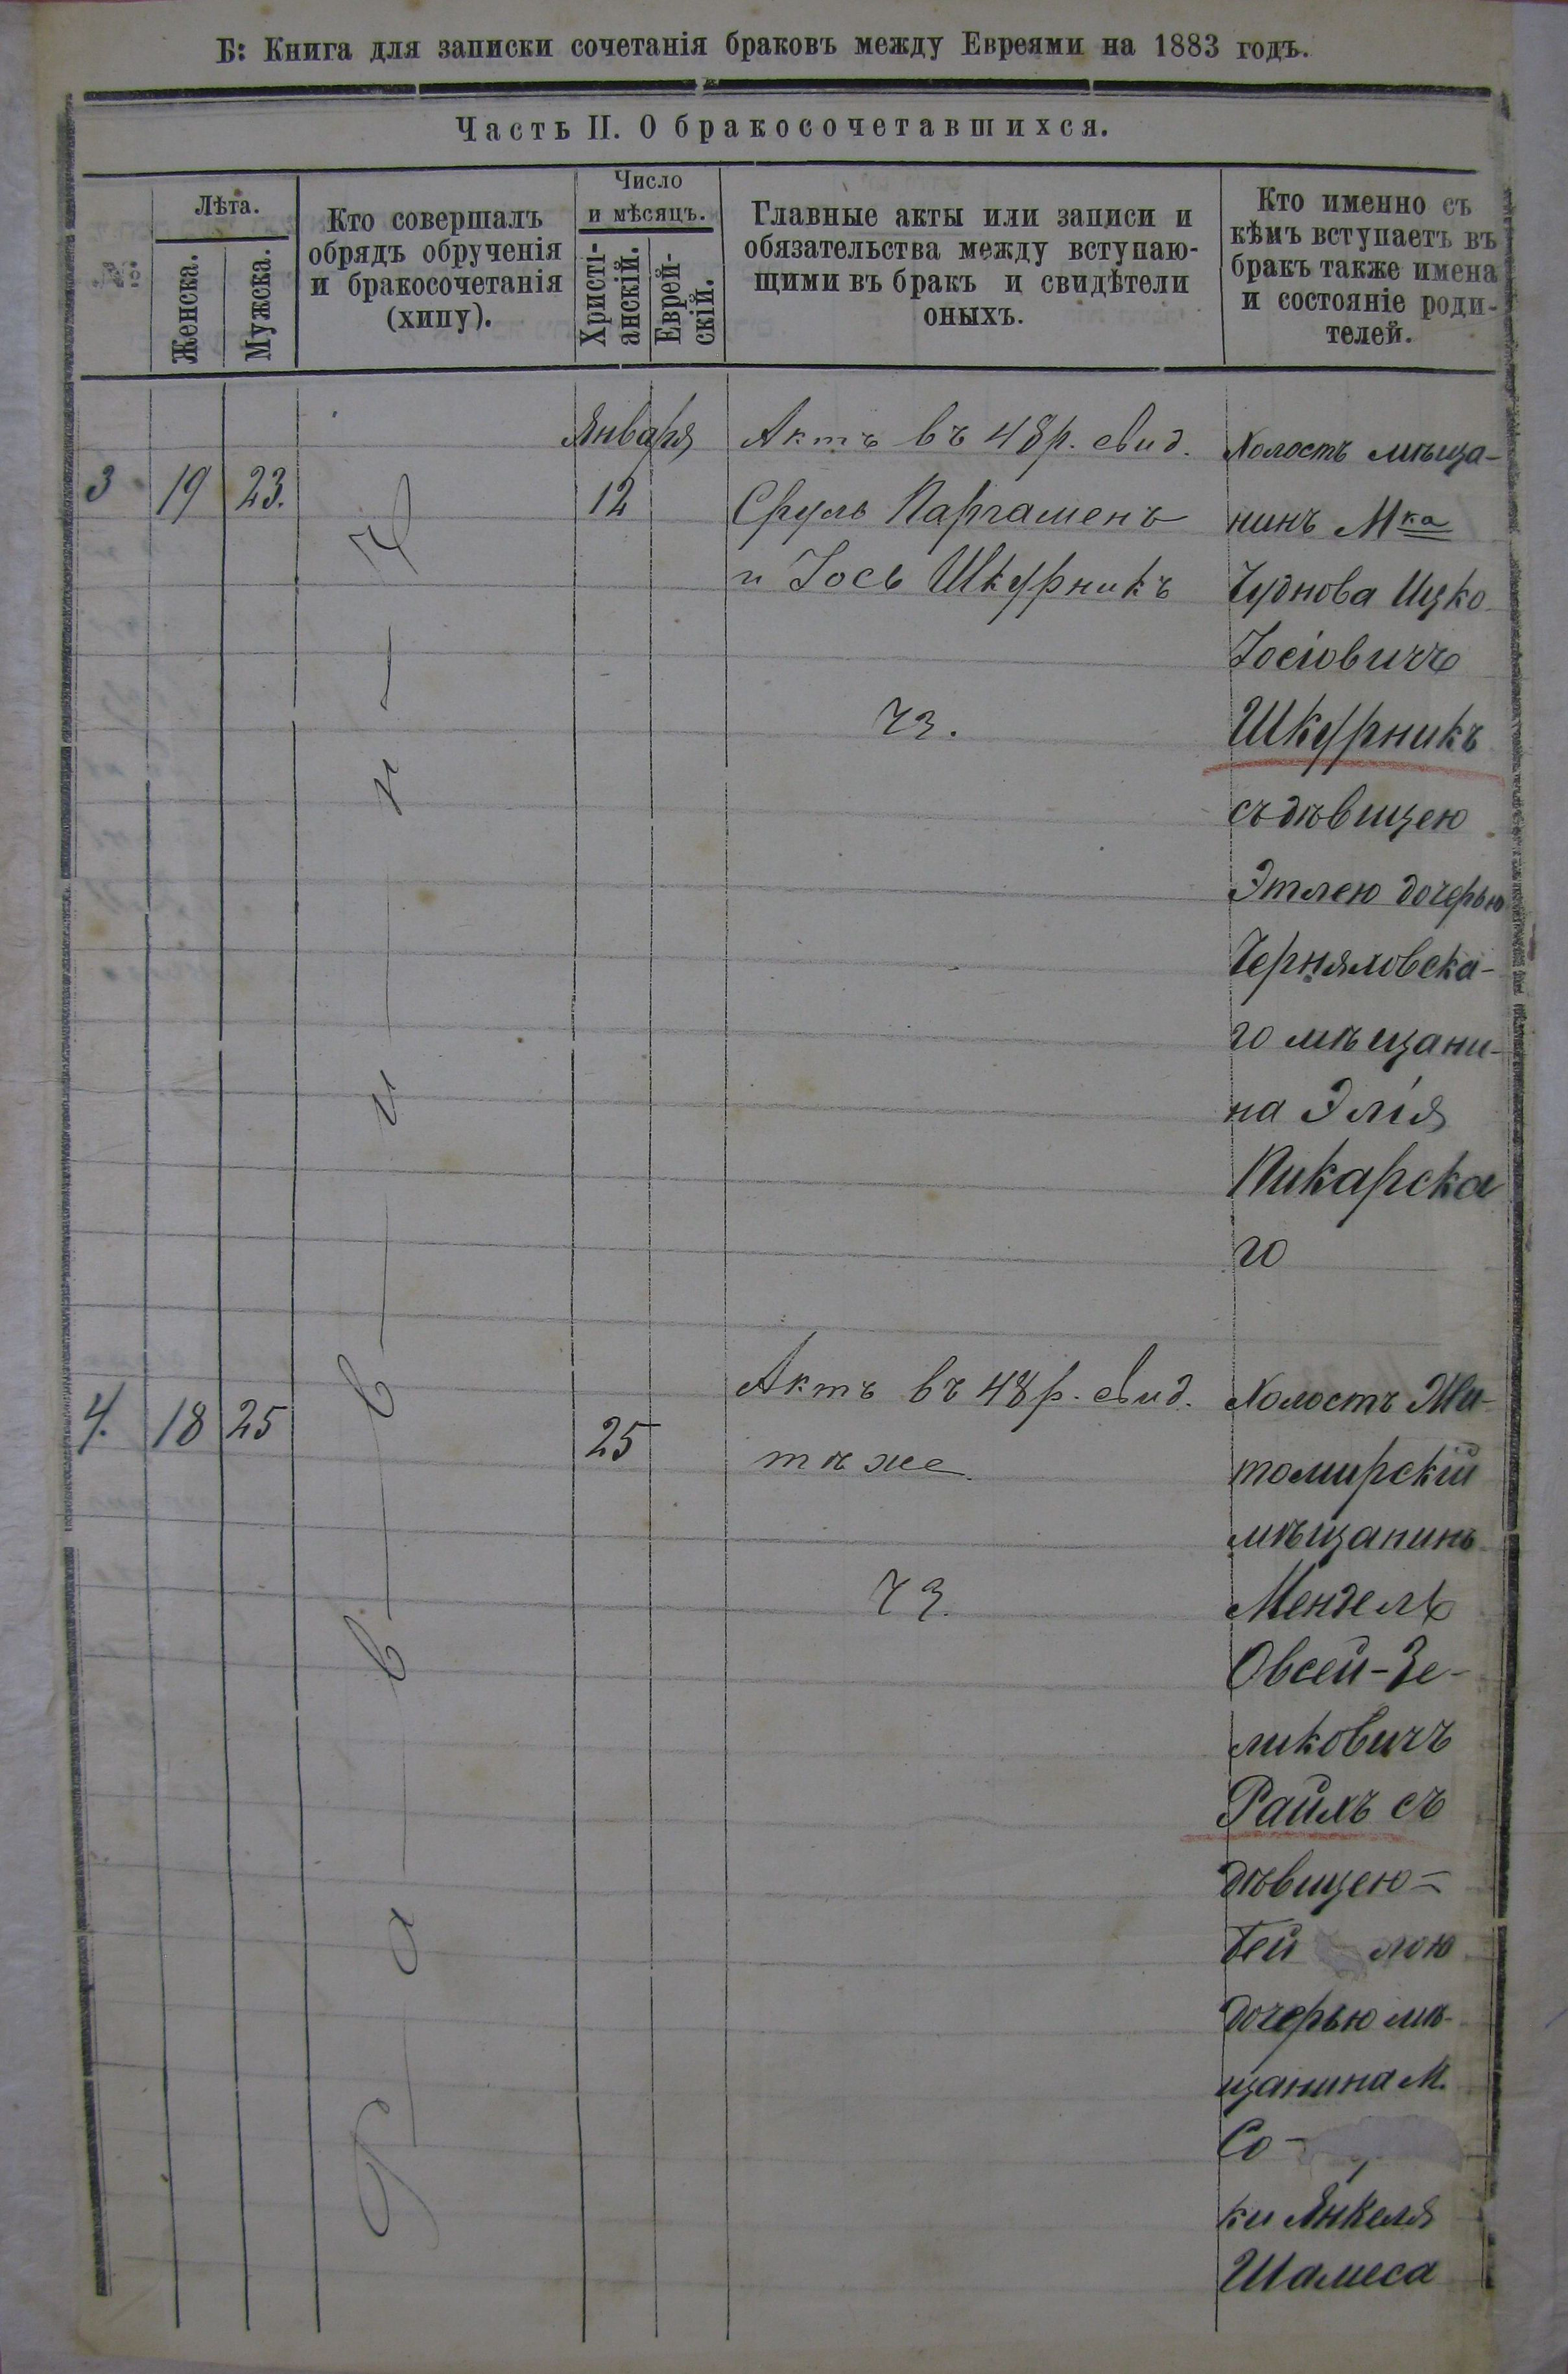 Б: Книга для записки сочетанія браковъ между Евреями на 1883 годъ.
Часть II. О бракосочетавшихся.
№
Лѣта.
Женска.
Мужска.
Кто совершалъ
обрядъ обрученія
и бракосочетанія
(хипу).
Число
и мѣсяцъ.
Христі-
анскій.
Еврей-
скій.
Главные акты или записи и
обязательства между вступаю-
щими въ бракъ и свидѣтели
оныхъ.
Кто именно съ
кѣмъ вступаетъ въ
бракъ также имена
и состояніе роди-
телей.
Раввинъ
3 19 23.
Января
12
Актъ въ 48 р. свид.
Сруль Паргаменъ
и Іось Шкурникъ
ЧЗ.
Холостъ мѣща-
нинъ Мка
Чуднова Ицко
Іосіовичъ
Шкурникъ
съ дѣвицею
Этлею дочерью
Черняховска-
го мѣщани-
на Элія
Пикарска
го
4. 18 25
25
Актъ въ 48 р. свид.
тѣ же
ЧЗ.
Холостъ Жи-
томирскій
мѣщанинъ
Мендель
Овсей-Зе-
ликовичъ
Райхъ съ
дѣвицею
Бей лою
дочерью мѣ-
щанина М.
Со-
ки Янкеля
Шамеса